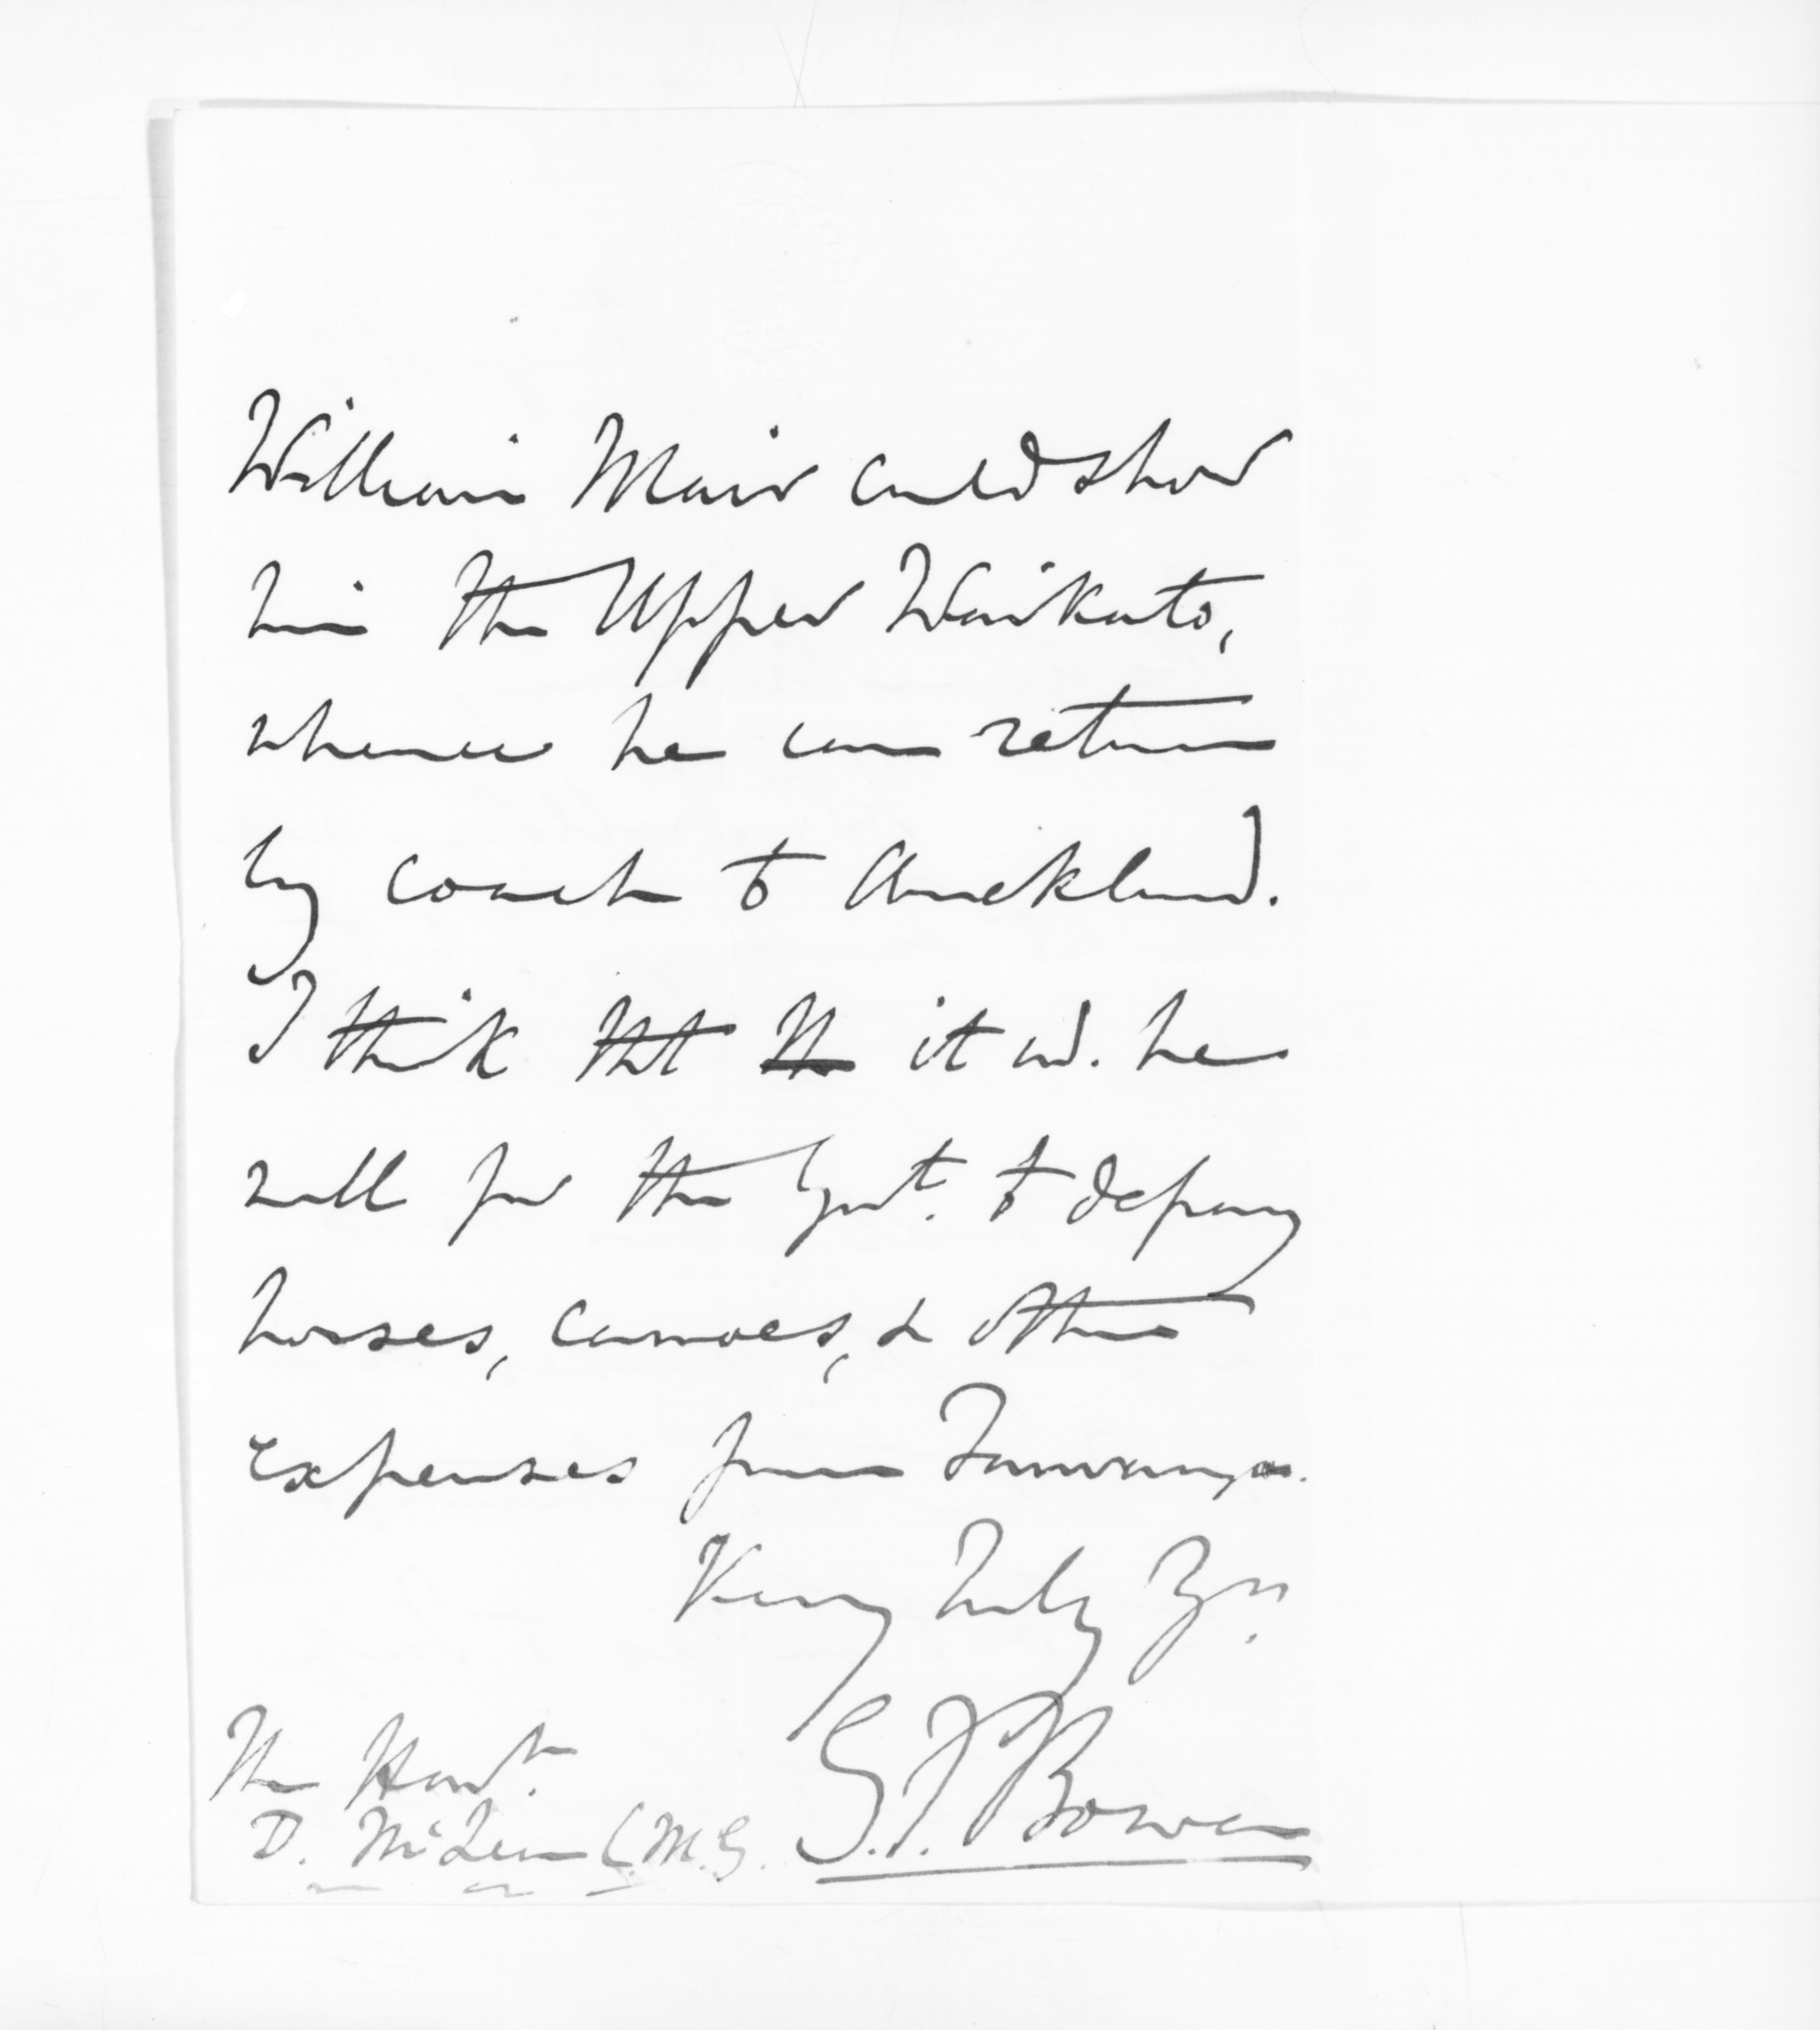 William Mair could show
him the Upper Waikato,
whence he can return
by coach to Auckland.
I think tht it wd. be
well for the Govt. to defray
horses, canoes, & other
expenses from Tauranga.
Very Truly Yrs.
The Honb.
D. McLean C.M.G. G.F. Bowen